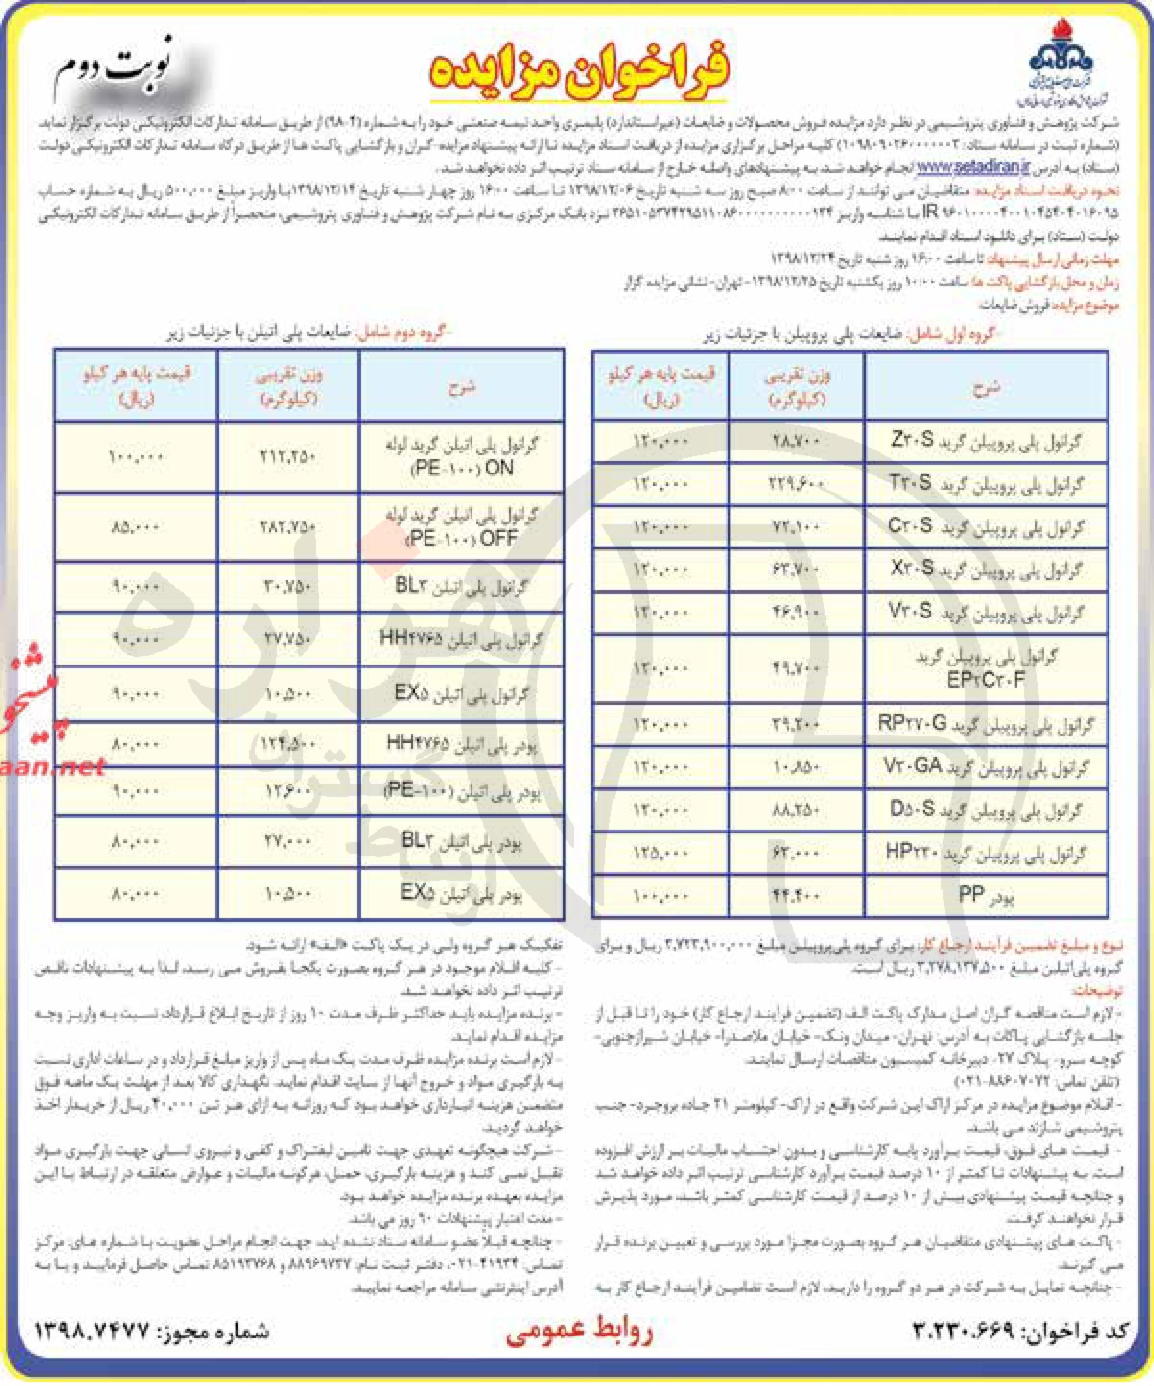 فراخوان مزایده
نوبت دوم
شرکت پژوهش و فناوری پتروشیمی در نظر دارد مزایده فروش محصولات و ضایعات (غیراستاندارد) پلیمری واحد نیمه صنعتی خود را به شماره (۹۸-۰۴) از طریق سامانه تدارکات الکترونیکی دولت برگزار نماید.
(شماره ثبت در سامانه ستاد: ۱۰۹۸۰۹۰۲۶۰۰۰۰۰۰۳) کلیه مراحل برگزاری مزایده از دریافت اسناد مزایده تا ارائه پیشنهاد مزایده‌گران و بازگشایی پاکت ها از طریق درگاه سامانه تدارکات الکترونیکی دولت
(ستاد) به آدرس www.setadiran.ir انجام خواهد شد. به پیشنهادهای واصله خارج از سامانه ستاد ترتیب اثر داده نخواهد شد.
نحوه دریافت اسناد مزایده: متقاضیان می توانند از ساعت ۸:۰۰ صبح روز سه شنبه تاریخ ۱۳۹۸/۱۲/۰۶ تا ساعت ۱۶:۰۰ روز چهار شنبه تاریخ ۱۳۹۸/۱۲/۱۴ با واریز مبلغ ۵۰۰,۰۰۰ ریال به شماره حساب
نزد بانک مرکزی به نام شرکت پژوهش و فناوری پتروشیمی، منحصراً از طریق سامانه تدارکات الکترونیکی
دولت (ستاد) برای دانلود اسناد اقدام نمایند.
مهلت زمانی ارسال پیشنهاد: تا ساعت ۱۶:۰۰ روز شنبه تاریخ ۱۳۹۸/۱۲/۲۴
زمان و محل بازگشایی پاکت ها: ساعت ۱۰:۰۰ روز یکشنبه تاریخ ۱۳۹۸/۱۲/۲۵- تهران- نشانی مزایده گزار
موضوع مزایده: فروش ضایعات
-گروه اول شامل: ضایعات پلی پروپیلن با جزئیات زیر
شرح وزن تقریبی (کیلوگرم) قیمت پایه هر کیلو (ریال)
گرانول پلی پروپیلن گرید Z۳۰S ۲۸,۷۰۰ ۱۲۰,۰۰۰
گرانول پلی پروپیلن گرید T۳۰S ۲۲۹,۶۰۰ ۱۲۰,۰۰۰
گرانول پلی پروپیلن گرید C۳۰S ۷۲,۱۰۰ ۱۲۰,۰۰۰
گرانول پلی پروپیلن گرید X۳۰S ۶۳,۷۰۰ ۱۲۰,۰۰۰
گرانول پلی پروپیلن گرید V۳۰S ۴۶,۹۰۰ ۱۲۰,۰۰۰
گرانول پلی پروپیلن گرید
EP۲C۳۰F ۴۹,۷۰۰ ۱۲۰,۰۰۰
گرانول پلی پروپیلن گرید RP۲۷۰G ۳۹,۲۰۰ ۱۲۰,۰۰۰
گرانول پلی پروپیلن گرید V۳۰GA ۱۰,۸۵۰ ۱۲۰,۰۰۰
گرانول پلی پروپیلن گرید D۵۰S ۸۸,۲۵۰ ۱۲۰,۰۰۰
گرانول پلی پروپیلن گرید HP۲۳۰ ۶۳,۰۰۰ ۱۲۵,۰۰۰
پودر PP ۴۴,۴۰۰ ۱۰۰,۰۰۰
-گروه دوم شامل: ضایعات پلی اتیلن با جزئیات زیر
شرح وزن تقریبی (کیلوگرم) قیمت پایه هر کیلو (ریال)
گرانول پلی اتیلن گرید لوله
(PE-۱۰۰) ON ۲۱۲,۲۵۰ ۱۰۰,۰۰۰
گرانول پلی اتیلن گرید لوله
(PE-۱۰۰) OFF ۲۸۲,۷۵۰ ۸۵,۰۰۰
گرانول پلی اتیلن BL۳ ۳۰,۷۵۰ ۹۰,۰۰۰
گرانول پلی اتیلن HH۴۷۶۵ ۲۷,۷۵۰ ۹۰,۰۰۰
گرانول پلی اتیلن EX۵ ۱۰,۵۰۰ ۹۰,۰۰۰
پودر پلی اتیلن HH۴۷۶۵ ۱۲۴,۵۰۰ ۸۰,۰۰۰
پودر پلی اتیلن (PE-۱۰۰) ۱۲,۶۰۰ ۹۰,۰۰۰
پودر پلی اتیلن BL۳ ۲۷,۰۰۰ ۸۰,۰۰۰
پودر پلی اتیلن EX۵ ۱۰,۵۰۰ ۸۰,۰۰۰
نوع و مبلغ تضمین فرآیند ارجاع کار: برای گروه پلی‌پروپیلن مبلغ ۳,۷۲۳,۹۰۰,۰۰۰ ریال و برای
گروه پلی‌اتیلن مبلغ ۳,۲۷۸,۱۳۷,۵۰۰ ریال است.
توضیحات:
- لازم است مناقصه گران اصل مدارک پاکت الف (تضمین فرآیند ارجاع کار) خود را تا قبل از
جلسه بازگشایی پاکات به آدرس: تهران- میدان ونک- خیابان ملاصدرا- خیابان شیرازجنوبی-
کوچه سرو- پلاک ۲۷- دبیرخانه کمیسیون مناقصات ارسال نمایند.
(تلفن تماس: ۸۸۶۰۷۰۷۲-۰۲۱)
- اقلام موضوع مزایده در مرکز اراک این شرکت واقع در اراک- کیلومتر ۲۱ جاده بروجرد- جنب
پتروشیمی شازند می باشد.
- قیمت های فوق، قیمت برآورد پایه کارشناسی و بدون احتساب مالیات بر ارزش افزوده
است. به پیشنهادات تا کمتر از ۱۰ درصد قیمت برآورد کارشناسی ترتیب اثر داده خواهد شد
و چنانچه قیمت پیشنهادی بیش از ۱۰ درصد از قیمت کارشناسی کمتر باشد، مورد پذیرش
قرار نخواهند گرفت.
- پاکت های پیشنهادی متقاضیان هر گروه بصورت مجزا مورد بررسی و تعیین برنده قرار
می گیرند.
- چنانچه تمایل به شرکت در هر دو گروه را دارید، لازم است تضامین فرآیند ارجاع کار به
تفکیک هر گروه ولی در یک پاکت «الف» ارائه شود.
- کلیه اقلام موجود در هر گروه بصورت یکجا بفروش می رسد، لذا به پیشنهادات ناقص
ترتیب اثر داده نخواهد شد.
- برنده مزایده باید حداکثر ظرف مدت ۱۰ روز از تاریخ ابلاغ قرارداد، نسبت به واریز وجه
مزایده اقدام نماید.
- لازم است برنده مزایده ظرف مدت یک ماه پس از واریز مبلغ قرارداد و در ساعات اداری نسبت
به بارگیری مواد و خروج آنها از سایت اقدام نماید. نگهداری کالا بعد از مهلت یک ماهه فوق
متضمن هزینه انبارداری خواهد بود که روزانه به ازای هر تن ۴۰,۰۰۰ ریال از خریدار اخذ
خواهد گردید.
- شرکت هیچگونه تعهدی جهت تامین لیفتراک و کفی و نیروی انسانی جهت بارگیری مواد
تقبل نمی کند و هزینه بارگیری، حمل، هرگونه مالیات و عوارض متعلقه در ارتباط با این
مزایده بعهده برنده مزایده خواهد بود.
- مدت اعتبار پیشنهادات ۹۰ روز می باشد.
- چنانچه قبلاً عضو سامانه ستاد نشده اید، جهت انجام مراحل عضویت با شماره های: مرکز
تماس: ۴۱۹۳۴-۰۲۱، دفتر ثبت نام: ۸۸۹۶۹۷۳۷ و ۸۵۱۹۳۷۶۸ تماس حاصل فرمایید و یا به
آدرس اینترنتی سامانه مراجعه نمایید.
کد فراخوان: ۳.۲۳۰.۶۶۹
روابط عمومی
شماره مجوز: ۱۳۹۸.۷۴۷۷